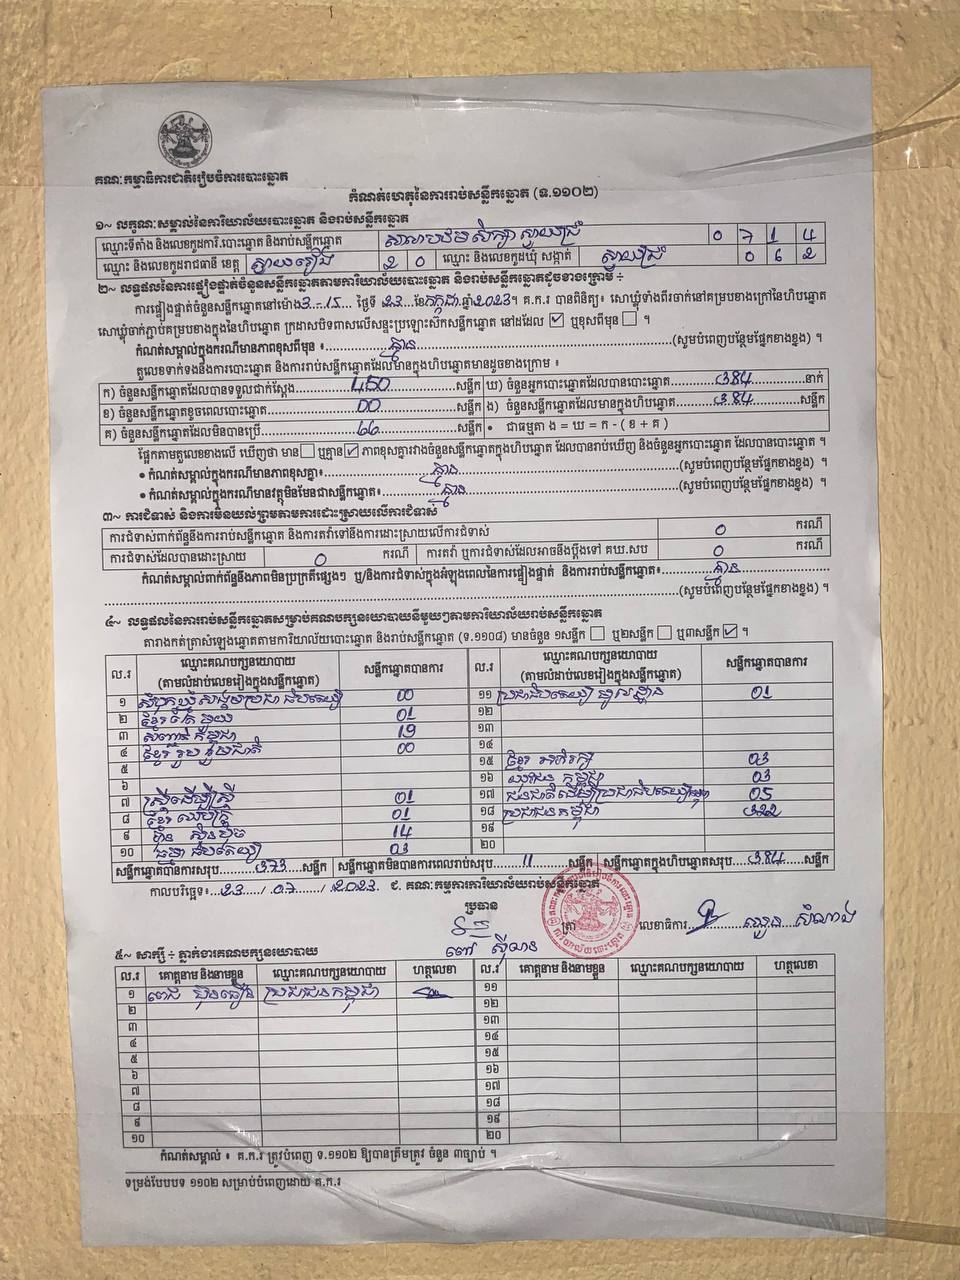 គណៈកម្មាធិការជាតិរៀបចំការបោះឆ្នោត
កំណត់ហេតុនៃការរាប់សន្លឹកឆ្នោត (ទ.១១០២)
១~ លក្ខណៈសម្គាល់នៃការិយាល័យបោះឆ្នោត និងរាប់សន្លឹកឆ្នោត
ឈ្មោះទីតាំង និងលេខកូដការិ.បោះឆ្នោត និងរាប់សន្លឹកឆ្នោត សាលាបឋមសិក្សា ស្វាយជ្រំ 0 7 1 4
ឈ្មោះ និងលេខកូដរាជធានី ខេត្ត ស្វាយរៀង 2 0 ឈ្មោះ និងលេខកូដឃុំ សង្កាត់ ស្វាយជ្រំ 0 6 2
២~ លទ្ធផលនៃការផ្ទៀងផ្ទាត់ចំនួនសន្លឹកឆ្នោតតាមការិយាល័យបោះឆ្នោត និងរាប់សន្លឹកឆ្នោតដូចខាងក្រោម ÷
ការផ្ទៀងផ្ទាត់ចំនួនសន្លឹកឆ្នោតនៅម៉ោង 3-15 ថ្ងៃទី 23 ខែ កក្កដា ឆ្នាំ 2023។ គ.ក.រ បានពិនិត្យ៖ សោឃ្លុំទាំងពីរចាក់នៅគម្របខាងក្រៅនៃហិបឆ្នោត
សោឃ្លុំចាក់ភ្ជាប់គម្របខាងក្នុងនៃហិបឆ្នោត ក្រដាសបិទពាសលើសន្ទះប្រឡោះស៊កសន្លឹកឆ្នោត នៅដដែល ☑ ឬខុសពីមុន ☐ ។
កំណត់សម្គាល់ក្នុងករណីមានភាពខុសពីមុន ៖ គ្មាន (សូមបំពេញបន្ថែមផ្នែកខាងខ្នង) ។
តួលេខទាក់ទងនឹងការបោះឆ្នោត និងការរាប់សន្លឹកឆ្នោតដែលមានក្នុងហិបឆ្នោតមានដូចខាងក្រោម ៖
ក) ចំនួនសន្លឹកឆ្នោតដែលបានទទួលជាក់ស្តែង 450 សន្លឹក ឃ) ចំនួនអ្នកបោះឆ្នោតដែលបានបោះឆ្នោត 384 នាក់
ខ) ចំនួនសន្លឹកឆ្នោតខូចពេលបោះឆ្នោត 00 សន្លឹក ង) ចំនួនសន្លឹកឆ្នោតដែលមានក្នុងហិបឆ្នោត 384 សន្លឹក
គ) ចំនួនសន្លឹកឆ្នោតដែលមិនបានប្រើ 66 សន្លឹក • ជាធម្មតា ង = ឃ = ក - ( ខ + គ )
ផ្អែកតាមតួលេខខាងលើ ឃើញថា មាន ☐ ឬគ្មាន ☑ ភាពខុសគ្នារវាងចំនួនសន្លឹកឆ្នោតក្នុងហិបឆ្នោត ដែលបានរាប់ឃើញ និងចំនួនអ្នកបោះឆ្នោត ដែលបានបោះឆ្នោត ។
• កំណត់សម្គាល់ក្នុងករណីមានភាពខុសគ្នា៖ គ្មាន (សូមបំពេញបន្ថែមផ្នែកខាងខ្នង) ។
• កំណត់សម្គាល់ក្នុងករណីមានវត្ថុមិនមែនជាសន្លឹកឆ្នោត៖ គ្មាន (សូមបំពេញបន្ថែមផ្នែកខាងខ្នង) ។
៣~ ការជំទាស់ និងការមិនយល់ព្រមតាមការដោះស្រាយលើការជំទាស់
ការជំទាស់ពាក់ព័ន្ធនឹងការរាប់សន្លឹកឆ្នោត និងការតវ៉ាទៅនឹងការដោះស្រាយលើការជំទាស់ 0 ករណី
ការជំទាស់ដែលបានដោះស្រាយ 0 ករណី ការតវ៉ា ឬការជំទាស់ដែលអាចនឹងប្តឹងទៅ គឃ.សប 0 ករណី
កំណត់សម្គាល់ពាក់ព័ន្ធនឹងភាពមិនប្រក្រតីផ្សេងៗ ឬ/និងការជំទាស់ក្នុងអំឡុងពេលនៃការផ្ទៀងផ្ទាត់ និងការរាប់សន្លឹកឆ្នោត៖ គ្មាន
(សូមបំពេញបន្ថែមផ្នែកខាងខ្នង) ។
៤~ លទ្ធផលនៃការរាប់សន្លឹកឆ្នោតសម្រាប់គណបក្សនយោបាយនីមួយៗតាមការិយាល័យរាប់សន្លឹកឆ្នោត
តារាងកត់ត្រាសំឡេងឆ្នោតតាមការិយាល័យបោះឆ្នោត និងរាប់សន្លឹកឆ្នោត (ទ.១១០៨) មានចំនួន ១សន្លឹក ☐ ឬ២សន្លឹក ☐ ឬ៣សន្លឹក ☑ ។
ល.រ ឈ្មោះគណបក្សនយោបាយ (តាមលំដាប់លេខរៀងក្នុងសន្លឹកឆ្នោត) សន្លឹកឆ្នោតបានការ ល.រ ឈ្មោះគណបក្សនយោបាយ (តាមលំដាប់លេខរៀងក្នុងសន្លឹកឆ្នោត) សន្លឹកឆ្នោតបានការ
១ សំបុកឃ្មុំសង្គមប្រជាធិបតេយ្យ 00 ១១ ប្រជាធិបតេយ្យមូលដ្ឋាន 01
២ ខ្មែរតែមួយ 01 ១២
៣ សំញាតិកម្ពុជា 19 ១៣
៤ ខ្មែររួបរួមជាតិ 00 ១៤
៥ ១៥ ខ្មែរអភិរក្ស 03
៦ ១៦ យុវជនកម្ពុជា 03
៧ ស្ត្រីដើម្បីស្ត្រី 01 ១៧ ជនជាតិដើមប្រជាធិបតេយ្យកម្ពុជា 05
៨ ខ្មែរឈប់ក្រ 01 ១៨ ប្រជាជនកម្ពុជា 322
៩ ហ្វ៊ុនស៊ិនប៉ិច 14 ១៩
១០ ធម្មាធិបតេយ្យ 03 ២០
សន្លឹកឆ្នោតបានការសរុប 373 សន្លឹក សន្លឹកឆ្នោតមិនបានការពេលរាប់សរុប 11 សន្លឹក សន្លឹកឆ្នោតក្នុងហិបឆ្នោតសរុប 384 សន្លឹក
កាលបរិច្ឆេទ៖ 23 / 07 / 2023 ជ. គណៈកម្មការការិយាល័យរាប់សន្លឹកឆ្នោត
ប្រធាន
ត្រា លេខាធិការ សំណាង
ពៅ ស៊ីផាន
៥~ សាក្សី ÷ ភ្នាក់ងារគណបក្សនយោបាយ
ល.រ គោត្តនាម និងនាមខ្លួន ឈ្មោះគណបក្សនយោបាយ ហត្ថលេខា ល.រ គោត្តនាម និងនាមខ្លួន ឈ្មោះគណបក្សនយោបាយ ហត្ថលេខា
១ ប្រជាជនកម្ពុជា ១១
២ ១២
៣ ១៣
៤ ១៤
៥ ១៥
៦ ១៦
៧ ១៧
៨ ១៨
៩ ១៩
១០ ២០
កំណត់សម្គាល់ ៖ គ.ក.រ ត្រូវបំពេញ ទ.១១០២ ឱ្យបានត្រឹមត្រូវ ចំនួន ៣ច្បាប់ ។
ទម្រង់បែបបទ ១១០២ សម្រាប់បំពេញដោយ គ.ក.រ